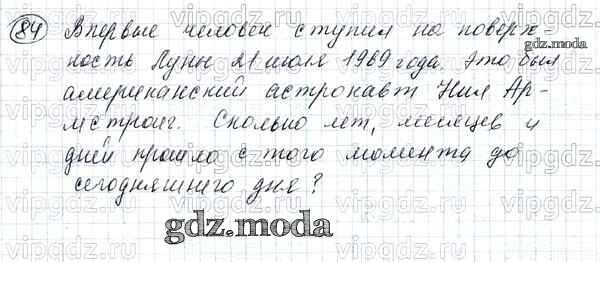 84 Впервые человек ступил на поверх-
ность Луны 21 июля 1969 года. Это был
американский астронавт Нил Ар-
мстронг. Сколько лет, месяцев и
дней прошло с того момента до
сегодняшнего дня?
gdz.moda
gdz.moda
vipgdz.ru